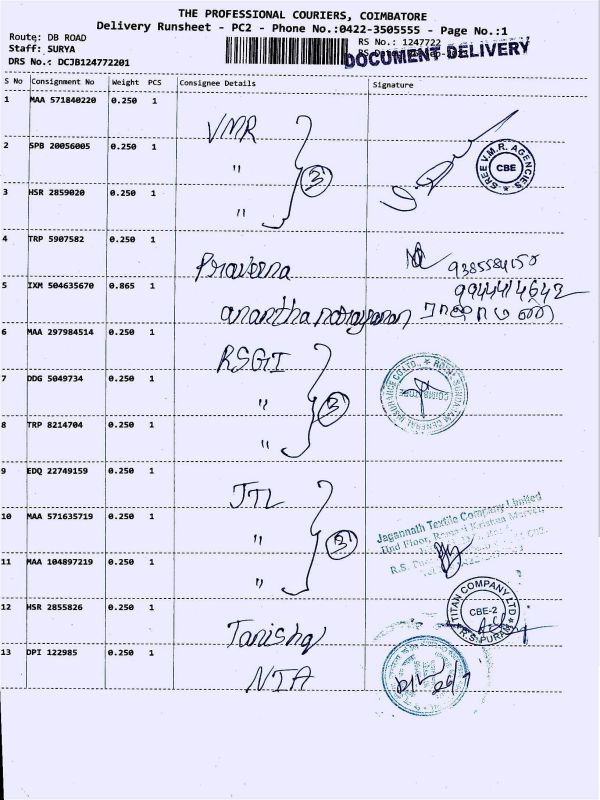 THE PROFESSIONAL COURIERS, COIMBATORE
Delivery Runsheet - PC2 - Phone No.:0422-3505555 - Page No.:1
Route: DB ROAD
RS No.: 1247722
Staff: SURYA
DOCUMENT DELIVERY
DRS No.: DCJB124772201
S No Consignment No Weight PCS Consignee Details Signature
1 MAA 571840220 0.250 1 VMR
2 SPB 20056005 0.250 1 " 3
SREE V.M.R. AGENCIES CBE
3 HSR 2859020 0.250 1 "
4 TRP 5907582 0.250 1 Praveena
5 IXM 504635670 0.865 1 anantha narayanan
9944414642
6 MAA 297984514 0.250 1 RSGI
7 DDG 5049734 0.250 1 " 3
ROYAL SUNDARAM GENERAL INSURANCE CO. LTD., COIMBATORE
8 TRP 8214704 0.250 1 "
9 EDQ 22749159 0.250 1 JTL
10 MAA 571635719 0.250 1 " 3
Jagannath Textile Company Limited
IInd Floor,
11 MAA 104897219 0.250 1 "
12 HSR 2855826 0.250 1 Tanishq
TITAN COMPANY LTD CBE-2 R.S. PURAM
13 DPI 122985 0.250 1 NIA